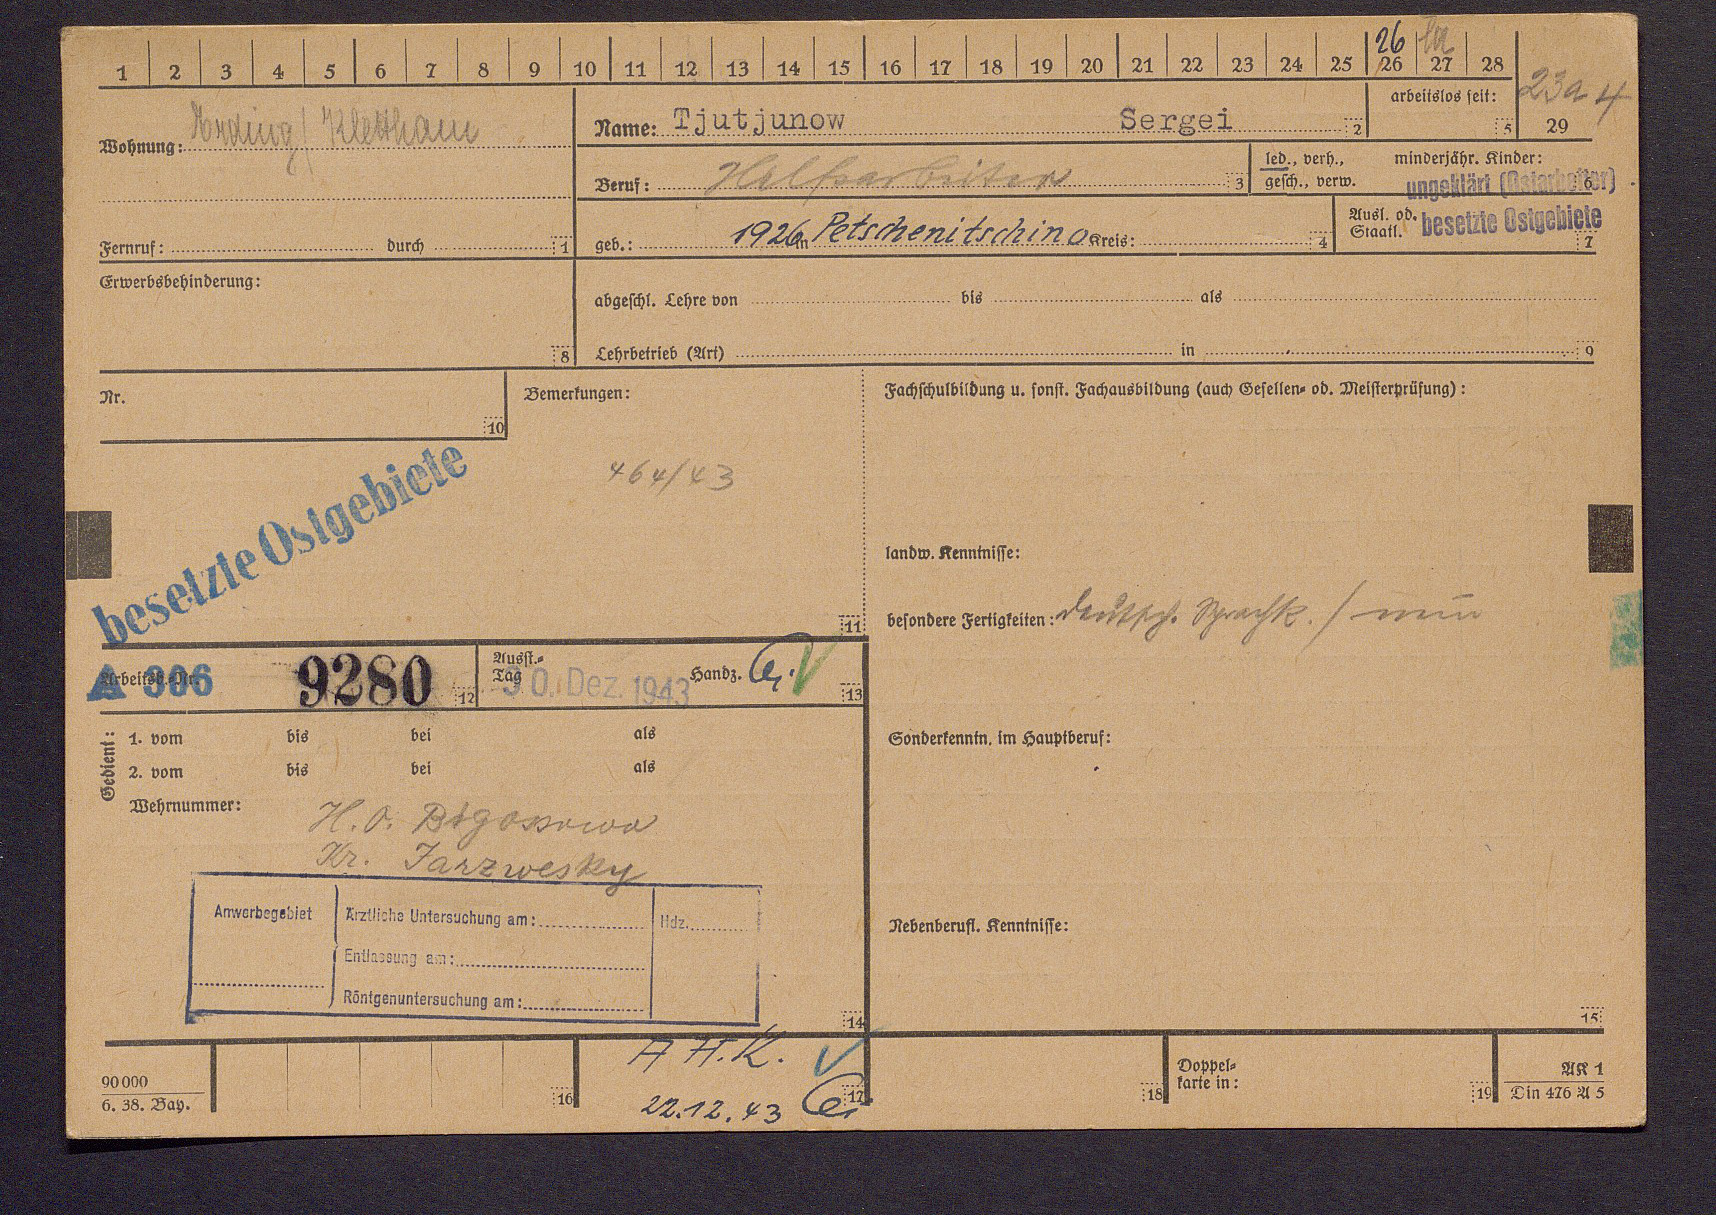 1 2 3 4 5 6 7 8 9 10 11 12 13 14 15 16 17 18 19 20 21 22 23 24 25 26 27 28
26
23a 4
29
Wohnung: Erding / Klettham
Name: Tjutjunow Sergei 2
arbeitslos seit: 5
Beruf: Hilfsarbeiter 3
led., verh., minderjähr. Kinder:
gesch., verw. 6
ungeklärt (Ostarbeiter)
Fernruf: durch 1
geb.: 1926 in Petschenitschino Kreis: 4
Ausl. od.
Staatl. 7
besetzte Ostgebiete
Erwerbsbehinderung:
8
abgeschl. Lehre von bis als
Lehrbetrieb (Art) in 9
Nr.
10
Bemerkungen:
464/43
11
besetzte Ostgebiete
Fachschulbildung u. sonst. Fachausbildung (auch Gesellen- od. Meisterprüfung):
landw. Kenntnisse:
besondere Fertigkeiten: deutsch. Sprachk. /
Sonderkenntn. im Hauptberuf:
Nebenberufl. Kenntnisse:
15
Arbeitsb.-Nr.
A 306 9280 12
Ausst.-
Tag 30. Dez. 1943 Handz. 13
Gedient:
1. vom bis bei als
2. vom bis bei als
Wehrnummer:
H.O.
Kr. Jarzwesky
Anwerbegebiet
Ärztliche Untersuchung am: Hdz.
Entlassung am:
Röntgenuntersuchung am:
14
90000
6. 38. Bay.
16
A H.K.
22.12.43
17
18
Doppel-
karte in: 19
AK 1
Din 476 A 5